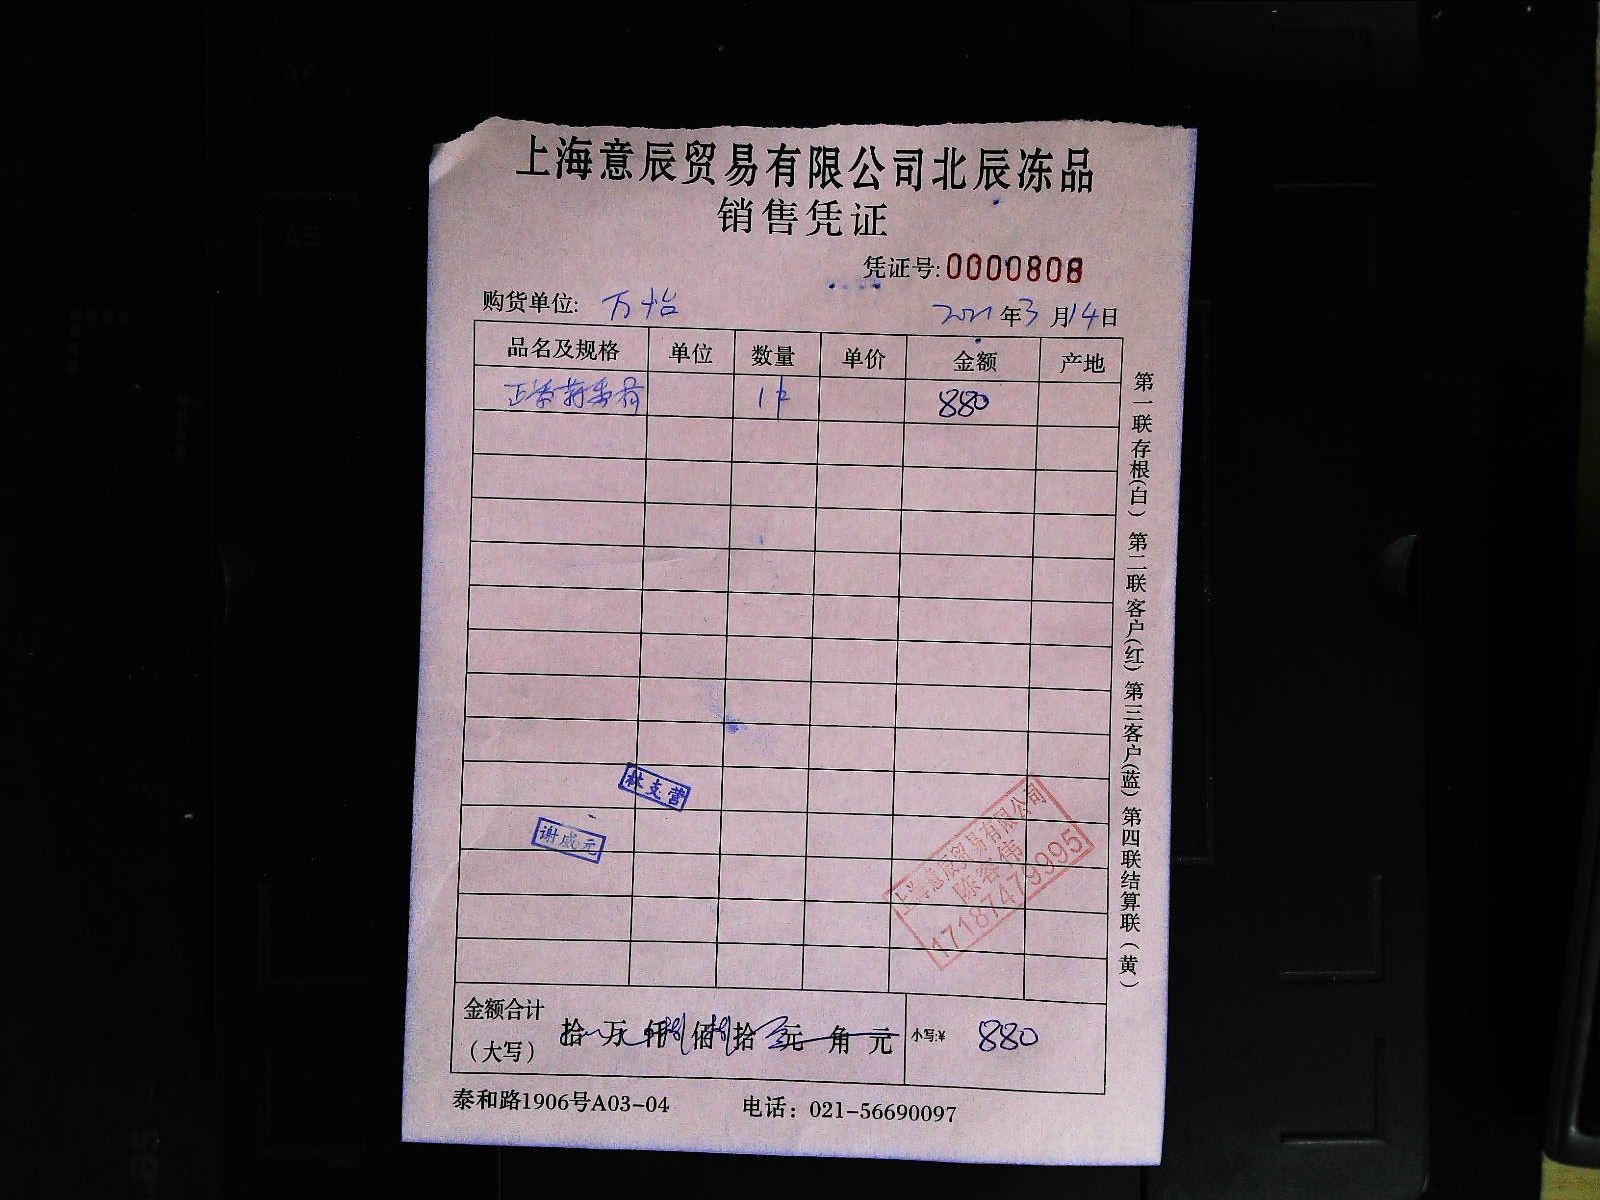 上海意辰贸易有限公司北辰冻品
销售凭证
凭证号:0000808
购货单位: 万怡
2021年3月14日
品名及规格 单位 数量 单价 金额 产地
1件 880
第一联存根(白) 第二联客户(红) 第三客户(蓝) 第四联结算联(黄)
林支营
谢威元
上海意辰贸易有限公司
陈客伟
17187479995
金额合计
(大写)
拾 万 仟捌佰捌拾 元 角 元 小写:¥ 880
泰和路1906号A03-04 电话: 021-56690097